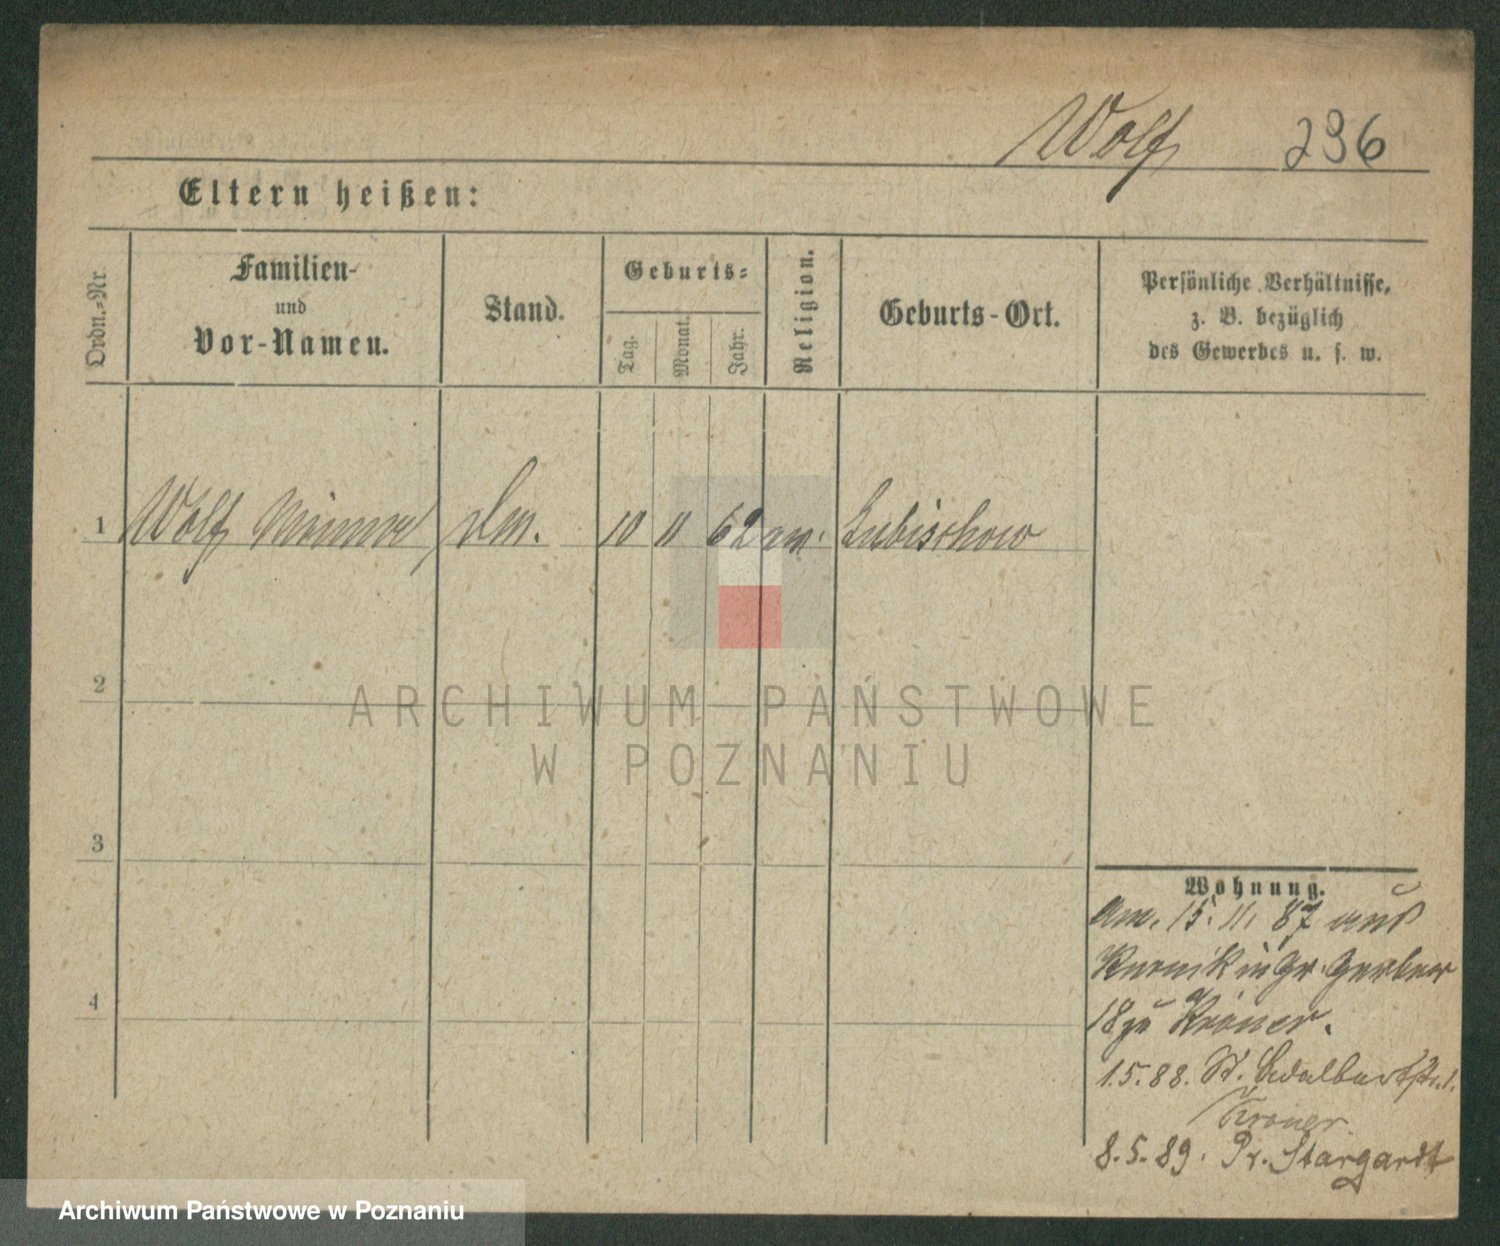 Wolf 236
Eltern heißen:
Ordn.-Nr.
Familien-
und
Vor-Namen.
Stand.
Geburts-
Tag.
Monat.
Jahr.
Religion.
Geburts-Ort.
Persönliche Verhältnisse,
z. B. bezüglich
des Gewerbes u. s. w.
1 Wolf 10 11 62 Lubischow
2
ARCHIWUM PAŃSTWOWE
W POZNANIU
3
Wohnung.
am. 15. 11. 87 aus
Kurnik in Gr. Gerber
18 zu Kröner.
1.5.88. St. Adalbertstr. 1.
Kroner
8.5.89. Pr. Stargardt
4
Archiwum Państwowe w Poznaniu